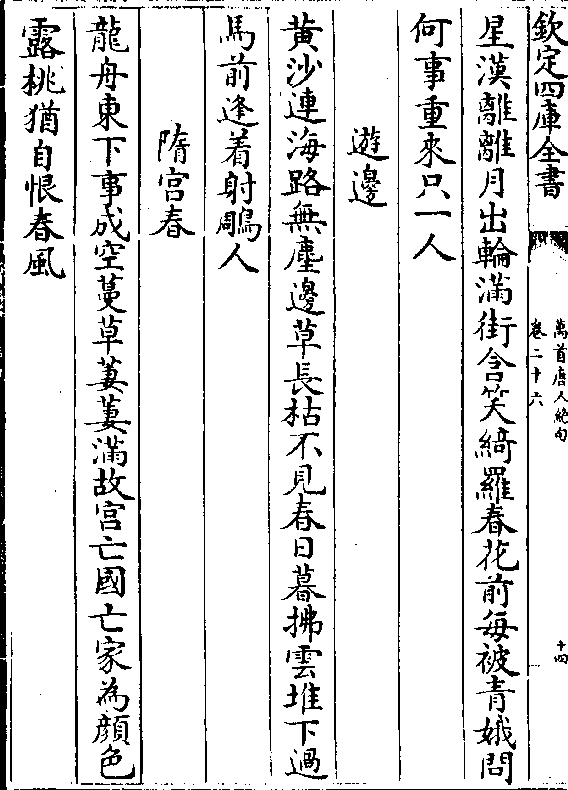 欽定四庫全書
萬首唐人絶句
卷二十六
十四
星漢離離月出輪滿街含笑綺羅春花前每被青娥問
何事重來只一人
遊邊
黄沙連海路無塵邊草長枯不見春日暮拂雲堆下過
馬前逢着射鵰人
隋宫春
龍舟東下事成空蔓草萋萋滿故宫亡國亡家為顔色
露桃猶自恨春風